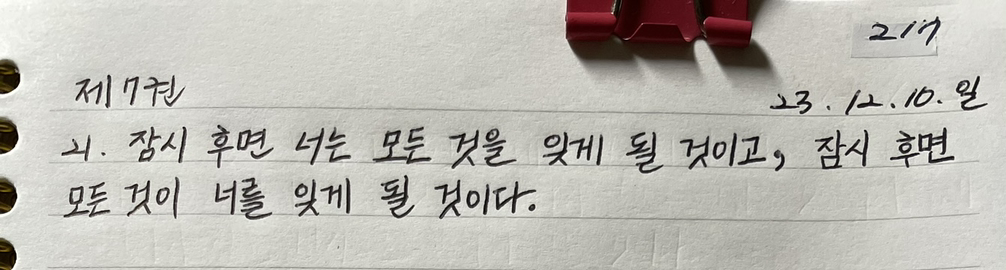 217
제7권
23.12.10.일
21. 잠시 후면 너는 모든 것을 잊게 될 것이고, 잠시 후면
모든 것이 너를 잊게 될 것이다.